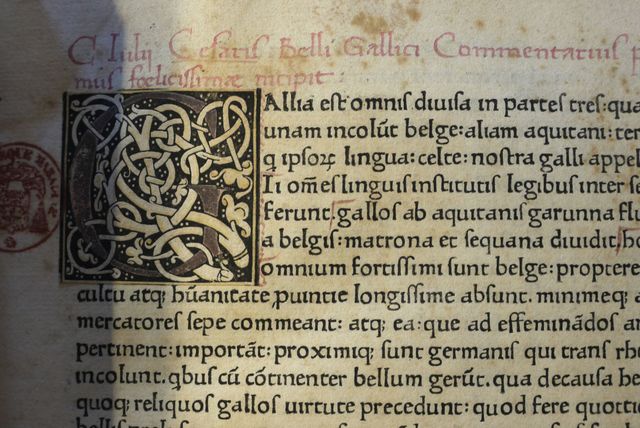 C. Iulij Cesaris Belli Gallici Commentarius p
mus fœlicissimæ incipit
GAllia est omnis diuisa in partes tres: qua
unam incolūt belge: aliam aquitani: ter
q ipsoꝝ lingua: celte: nostra galli appel
Ii om̄es linguis institutis legibus inter se
ferunt. gallos ab aquitanis garunna flu
a belgis: matrona et sequana diuidit, ho
omnium fortissimi sunt belge: proptere
cultu atq; hūanitate ꝓuintie longissime absunt. minimeq; a
mercatores sepe commeant: atq; ea: que ad effeminādos an
pertinent: important: proximiq; sunt germanis qui trans rhe
incolunt. qbus cū cōtinenter bellum gerūt. qua de causa he
quoq; reliquos gallos uirtute precedunt: quod fere quotti